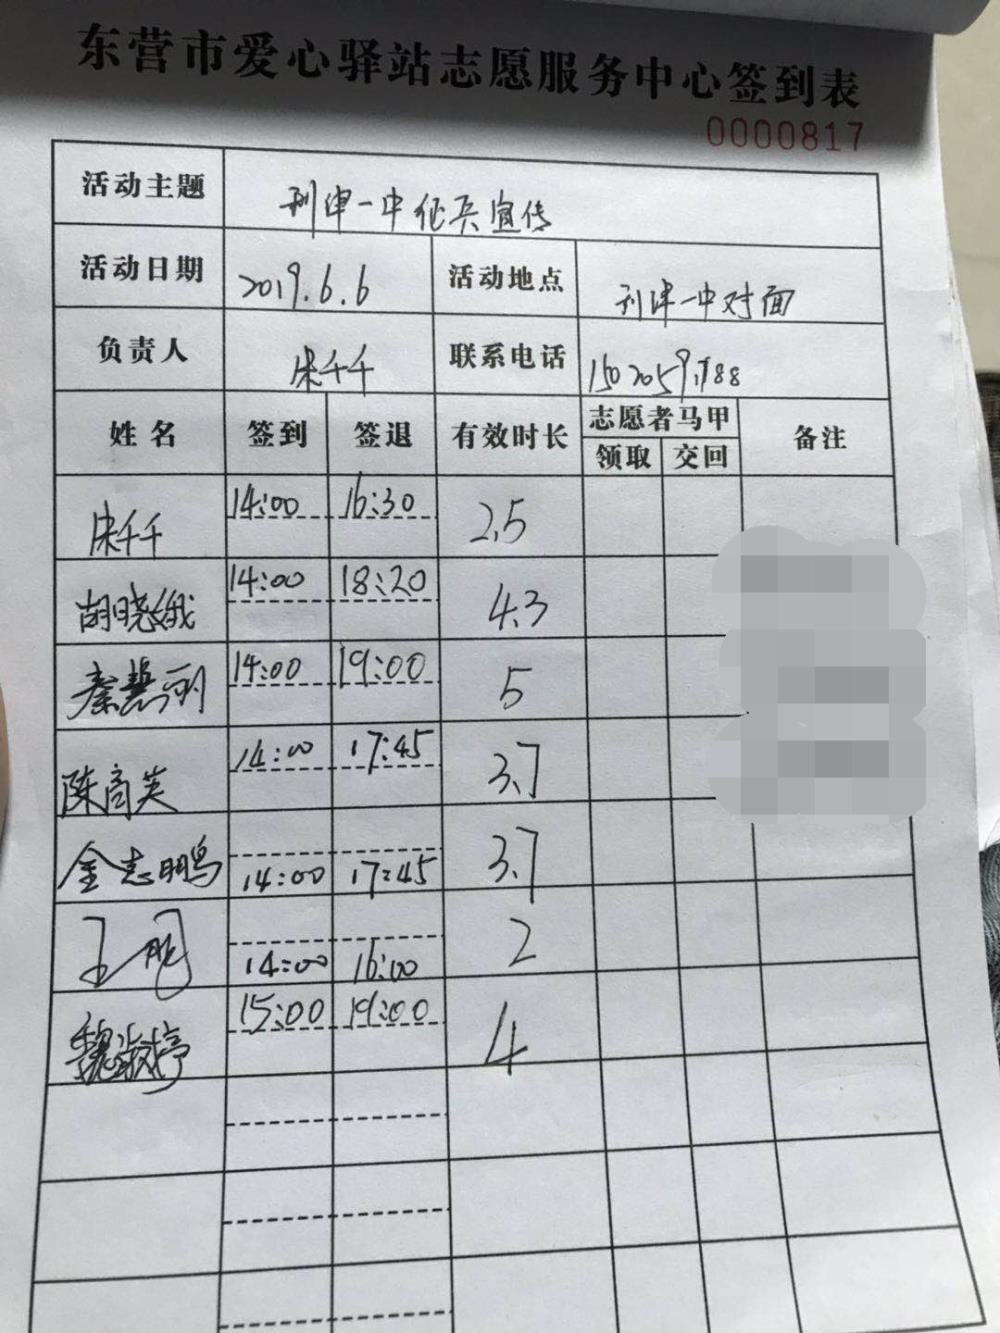 东营市爱心驿站志愿服务中心签到表
0000817
活动主题 利津一中征兵宣传
活动日期 2019.6.6 活动地点 利津一中对面
负责人 宋千千 联系电话
姓名 签到 签退 有效时长 志愿者马甲 备注
领取 交回
宋千千 14:00 16:30 2.5
胡晓娥 14:00 18:20 4.3
秦慧丽 14:00 19:00 5
陈商英 14:00 17:45 3.7
金志鹏 14:00 17:45 3.7
王 14:00 16:00 2
魏淑婷 15:00 19:00 4